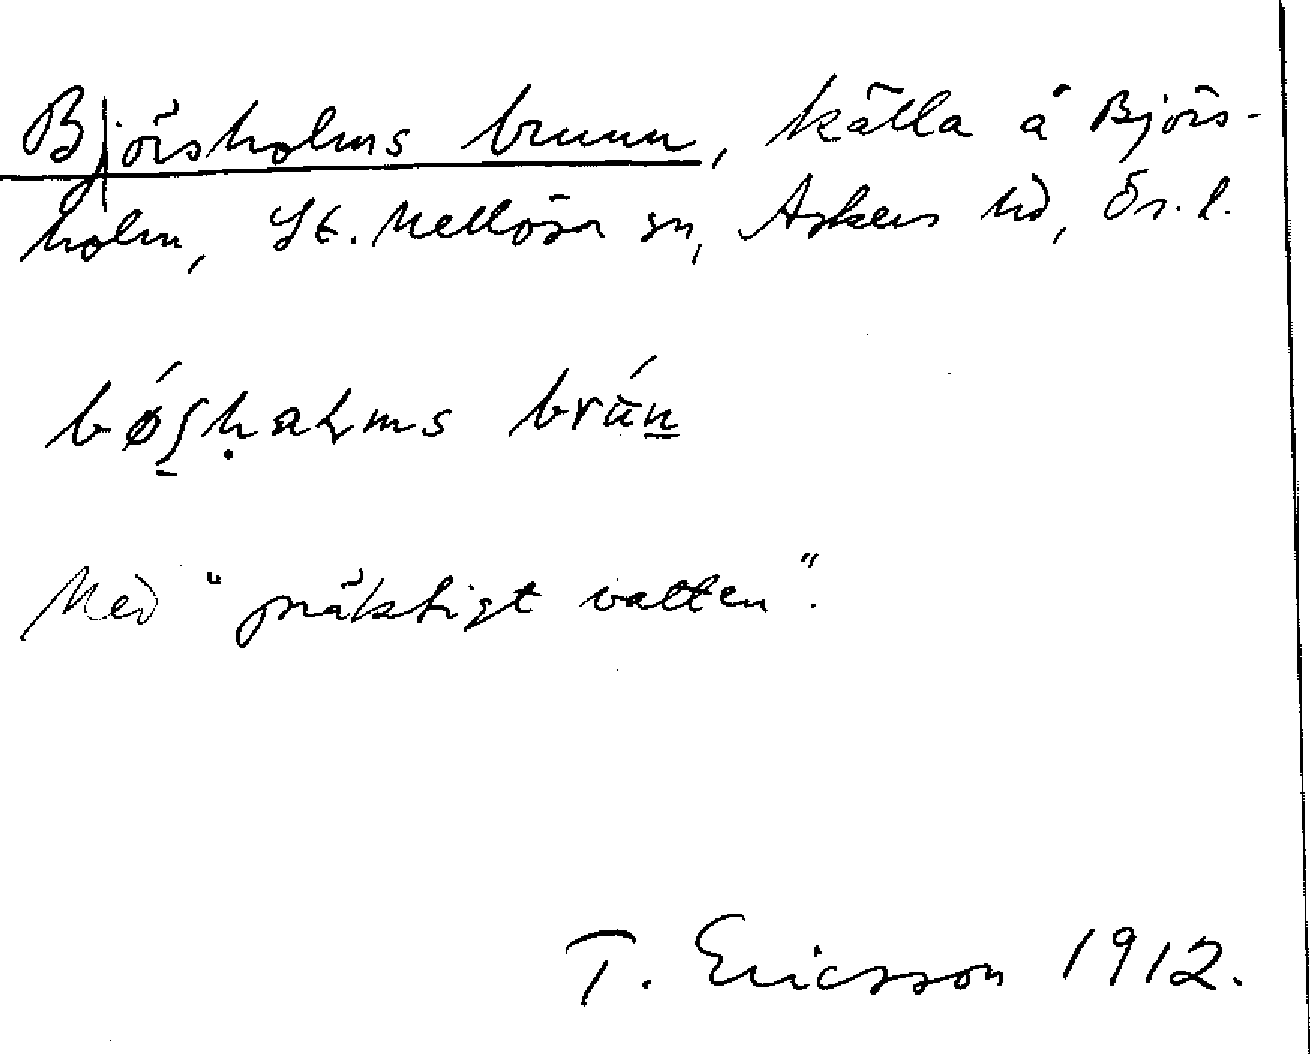 Björsholms brunn, källa å Björs-
holm, St. Mellösa sn, Askers hd, Ör. l.
brún
Med "präktigt vatten".
T. Ericsson 1912.